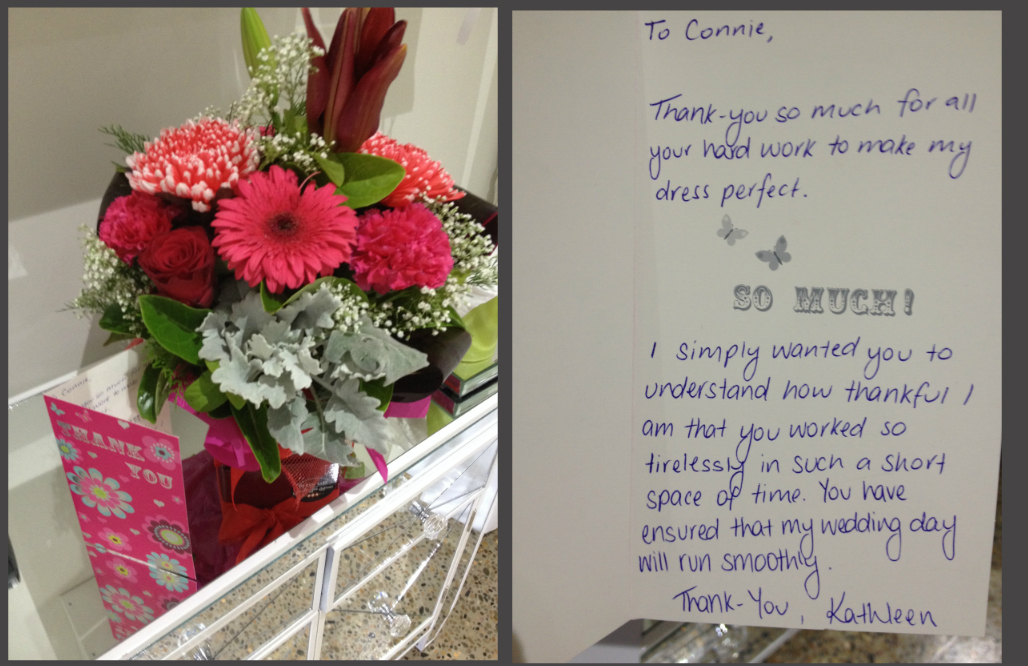 THANK
YOU
To Connie,
Thank-you so much for all
your hard work to make my
dress perfect.
SO MUCH!
I simply wanted you to
understand how thankful I
am that you worked so
tirelessly in such a short
space of time. You have
ensured that my wedding day
will run smoothly.
Thank-You, Kathleen